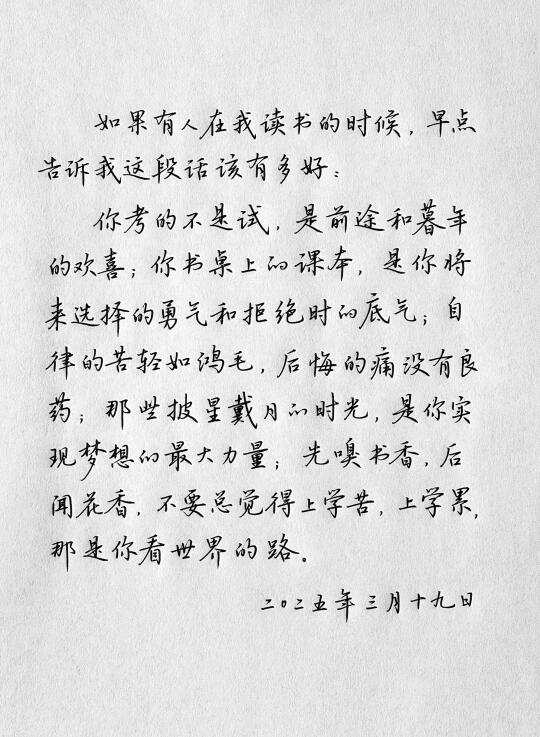 如果有人在我读书的时候，早点
告诉我这段话该有多好：
你考的不是试，是前途和暮年
的欢喜；你书桌上的课本，是你将
来选择的勇气和拒绝时的底气；自
律的苦轻如鸿毛，后悔的痛没有良
药；那些披星戴月的时光，是你实
现梦想的最大力量；先嗅书香，后
闻花香，不要总觉得上学苦，上学累，
那是你看世界的路。
二〇二五年三月十九日